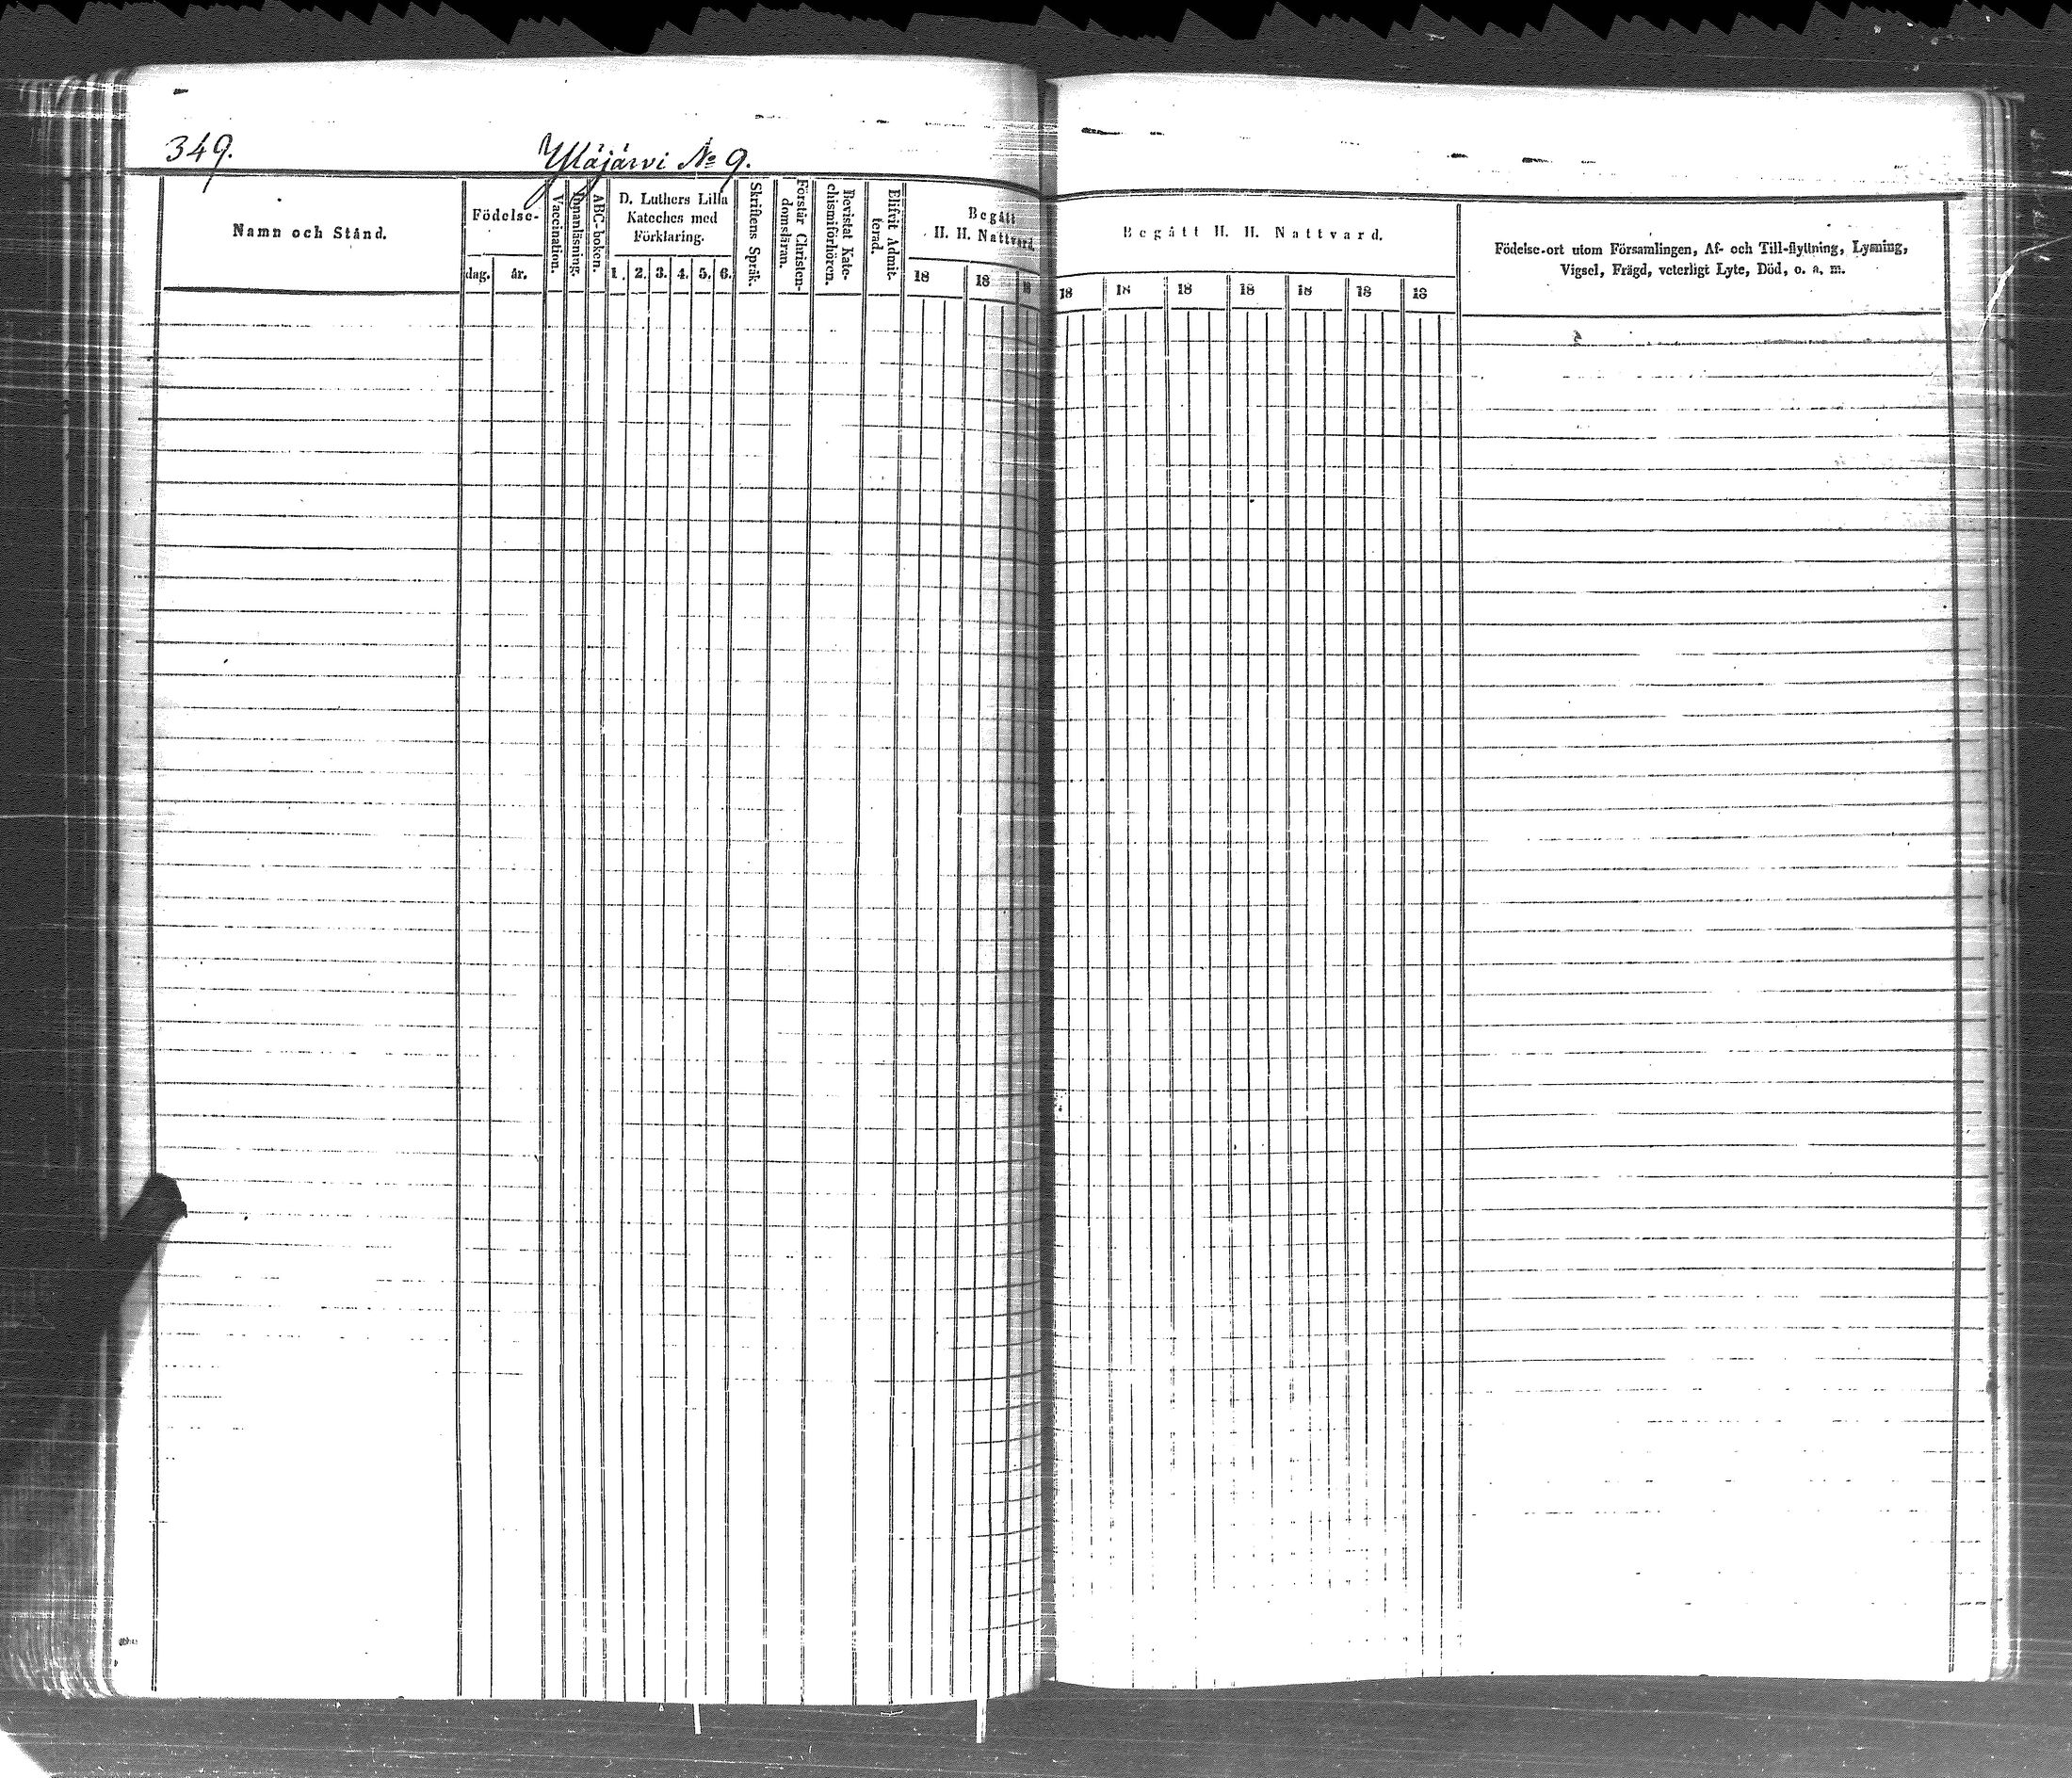 349.
Yläjärvi No 9.
Namn och Stånd.
Födelse-
dag. år.
Vaccination.
Innanläsning.
ABC-boken.
D. Luthers Lilla
Kateches med
Förklaring.
1. 2. 3. 4. 5. 6.
Skriftens Språk.
Förstår Christen-
domsläran.
Bevistat Kate-
chismiförhören.
Blifvit Admit-
terad.
Begått
H. H. Nattvard.
18 18 18
Begått H. H. Nattvard.
18 18 18 18 18 18 18
Födelse-ort utom Församlingen, Af- och Till-flyttning, Lysning,
Vigsel, Frägd, veterligt Lyte, Död, o. a. m.